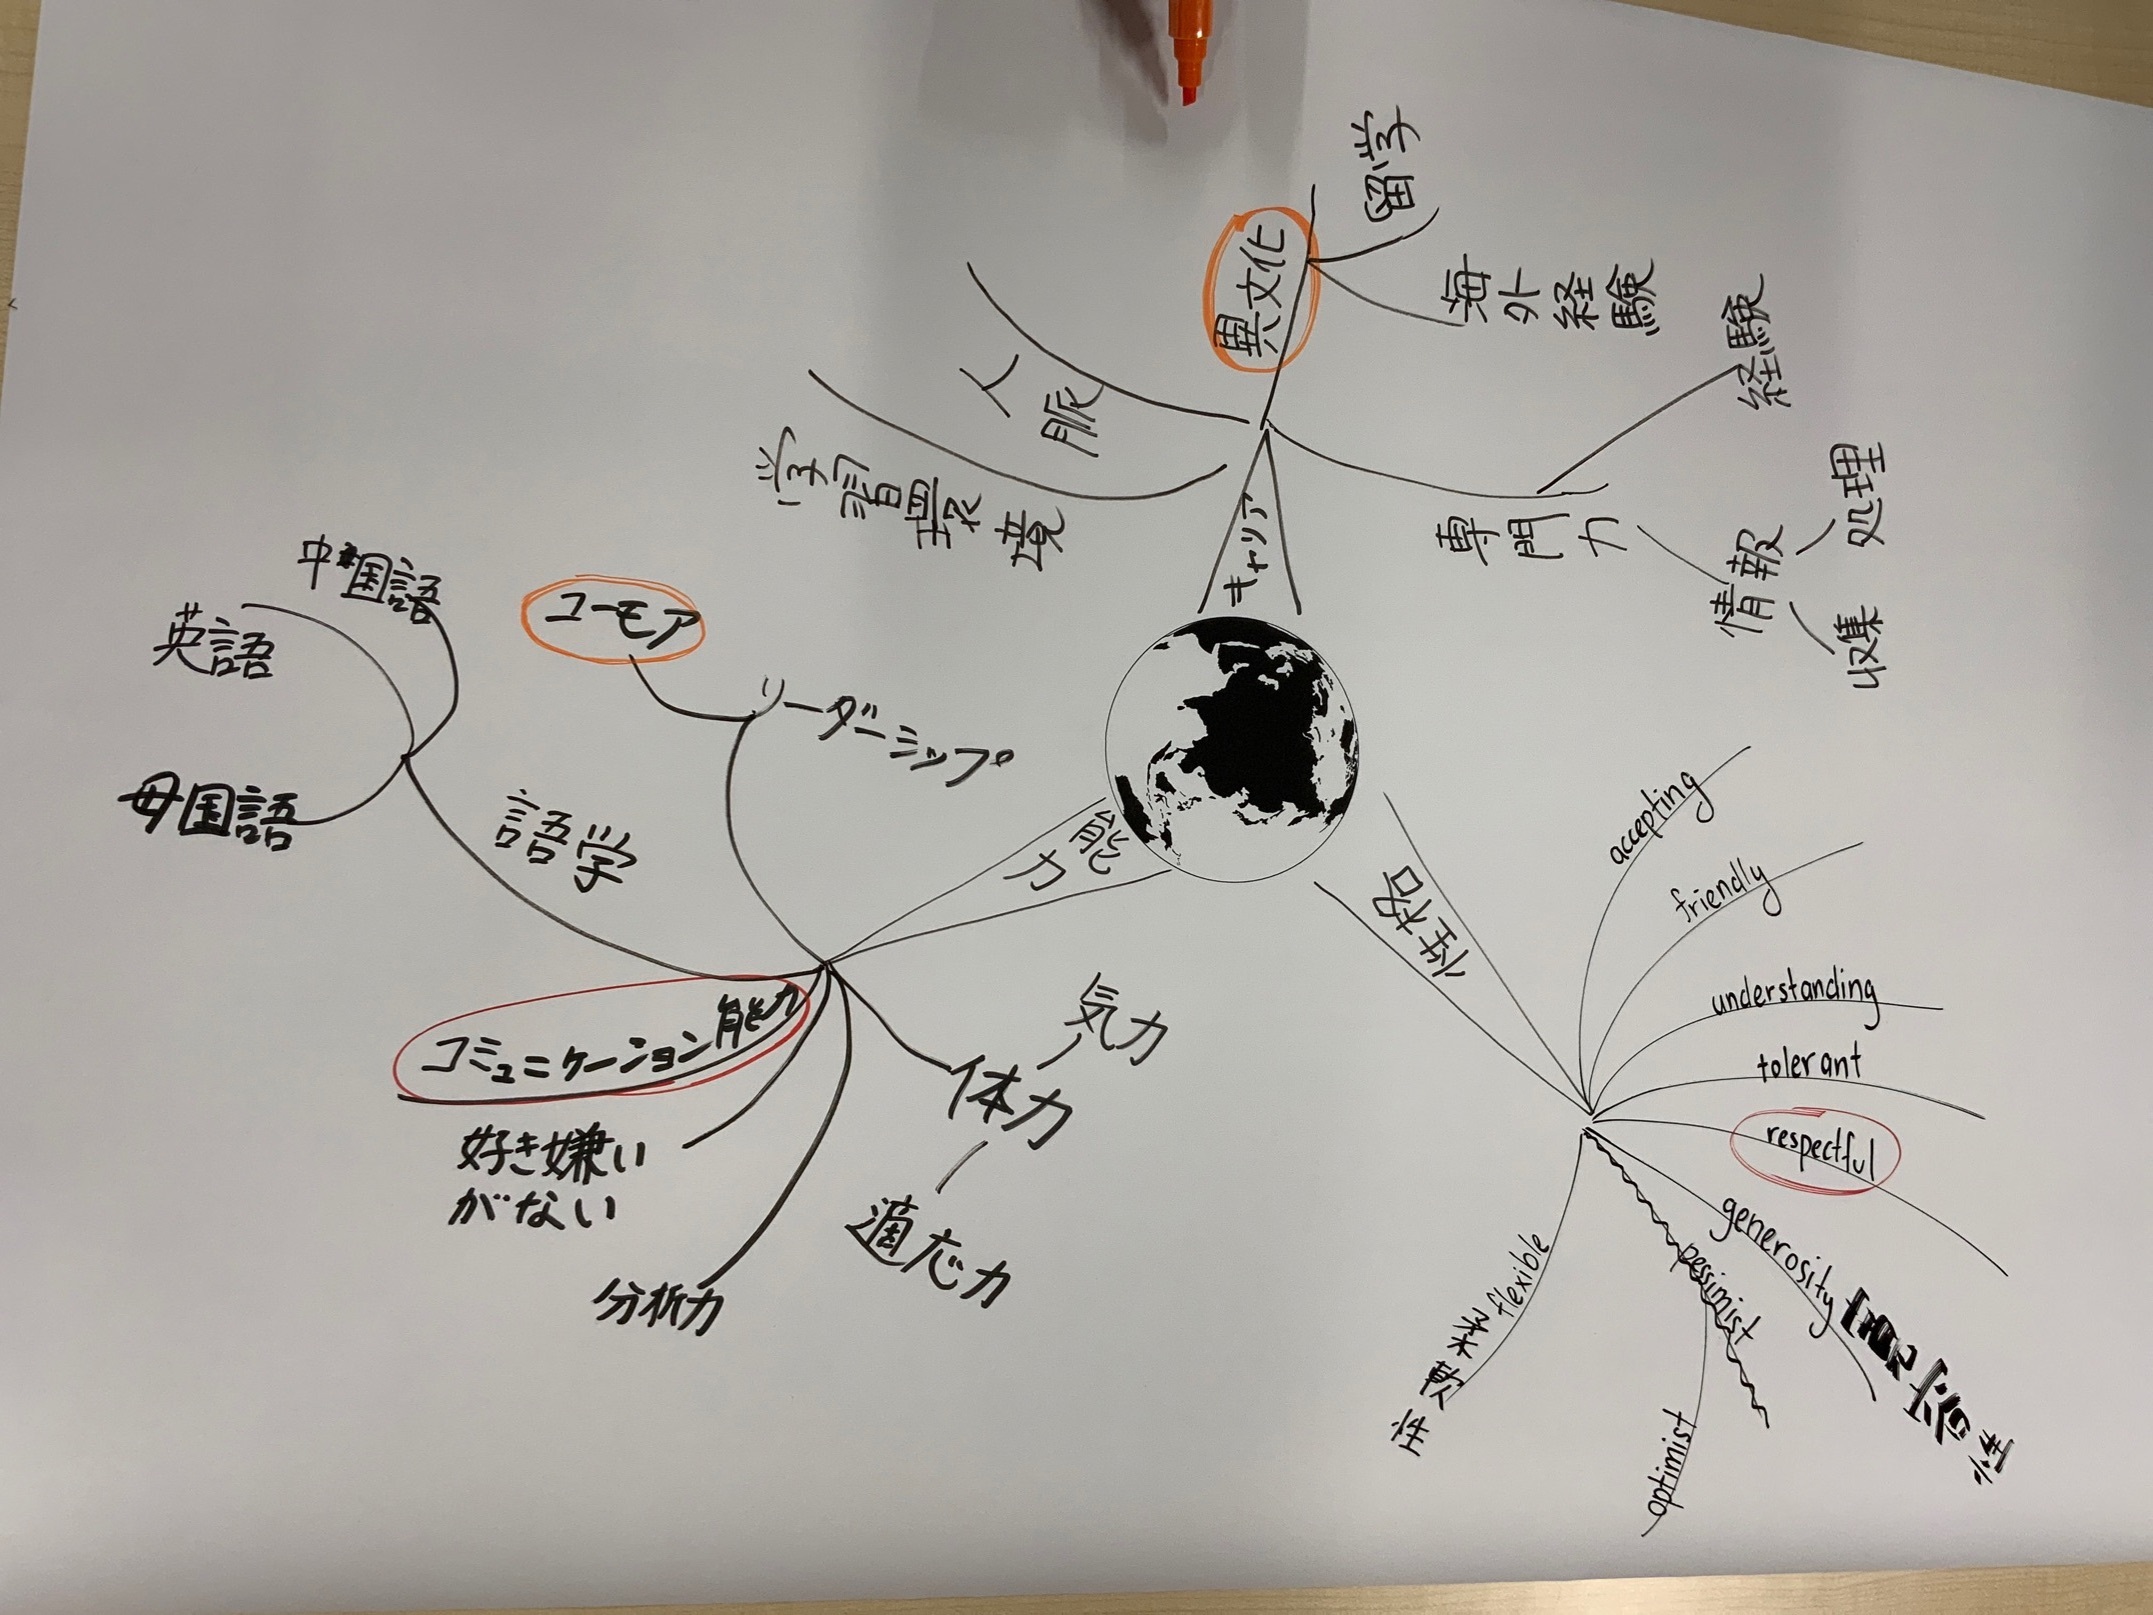 異文化
留学
海外経験
人脈
学習環境
キャリア
専門力
経験
情報
処理
収集
中国語
英語
母国語
語学
ユーモア
リーダーシップ
能力
コミュニケーション能力
好き嫌い
がない
分析力
体力
気力
適応力
性格
accepting
friendly
understanding
tolerant
respectful
generosity
pessimist
optimist
flexible
柔軟性